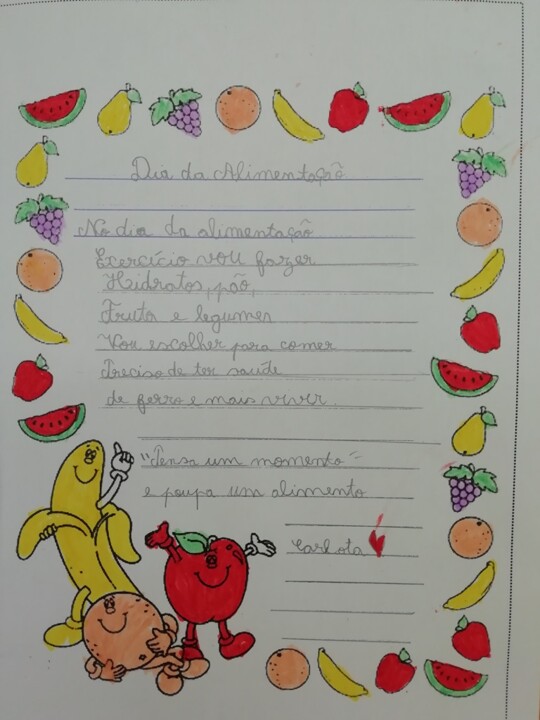 Dia da Alimentação
No dia da alimentação
Exercício vou fazer
Hidratos, pão,
Fruta e legumes
Vou escolher para comer
Preciso de ter saúde
de ferro e mais viver.
"Pensa um momento"
e poupa um alimento
Carlota